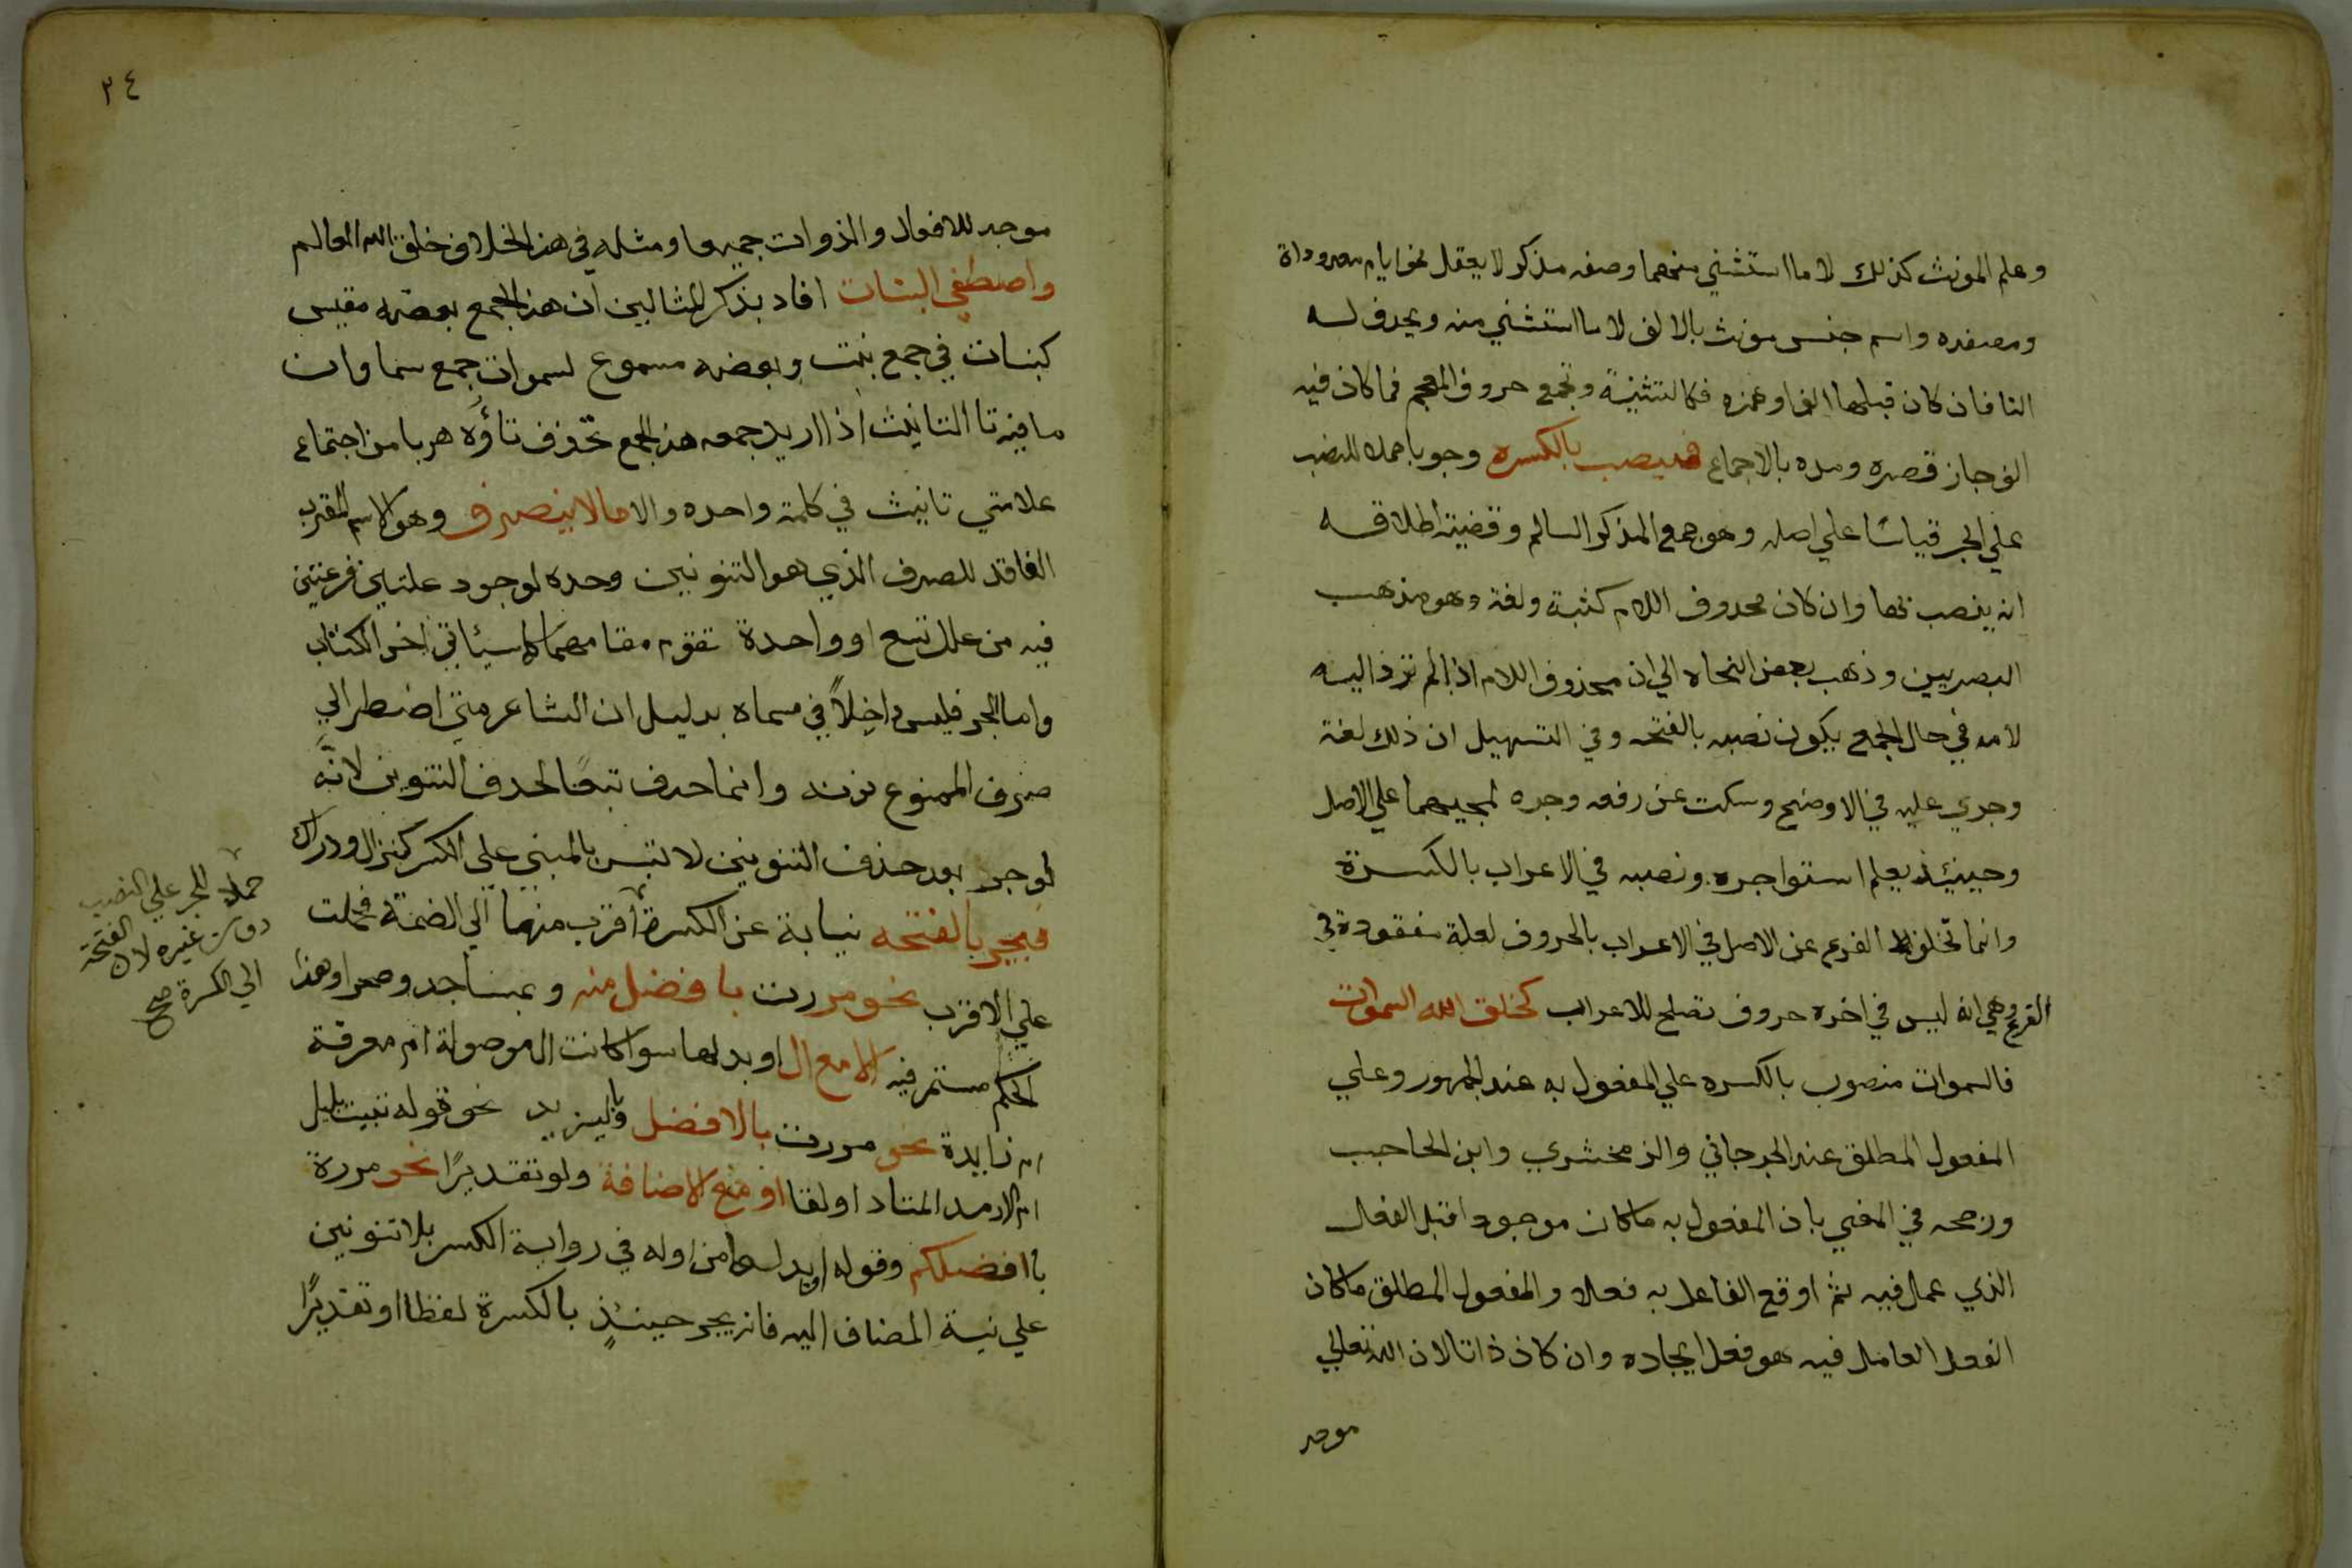 وعلم المونث كذلك لا ما استثني منهما وصفه مذكر لا يعقل نحو ايام معدوداة
ومصغره واسم جنس مونث بالالف لا ما استثني منه ويحدف له
التا فان كان قبلها الف او همزه فكالتثنية وتجمع حروف المعجم فما كان فيه
الف جاز قصره ومده بالاجماع فينصب بالكسره وجوبا حملا للنصب
علي الجر قياسا علي اصله وهو جمع المذكر السالم وقضية اطلاقه
انه ينصب بها وان كان محدوف اللام كثبة ولغة وهو مذهب
البصريين وذهب بعض النحاه الي ان محذوف اللام اذا لم ترد اليه
لامه في حال الجمع يكون نصبه بالفتحه وفي التسهيل ان ذلك لغة
وجري عليه في الاوضح وسكت عن رفعه وجره لمجيهما علي الاصل
وحينيئذ يعلم استوا جره ونصبه في الاعراب بالكسرة
وانما تخلف الفرع عن الاصل في الاعراب بالحروف لعلة مفقودة في
الفرع وهي انه ليس في اخره حروف تصلح للاعراب كخلق الله السموات
فالسموات منصوب بالكسره علي المفعول به عند الجمهور وعلي
المفعول المطلق عند الجرجاني والزمخشري وابن الحاجب
ورجحه في المغني بان المفعول به ما كان موجودا قبل الفعال
الذي عمل فيه ثم اوقع الفاعل به فعلا والمفعول المطلق ما كان
الفعل العامل فيه هو فعل ايجاده وان كان ذاتا لان الله تعالي
موجد
٢٤
موجد للافعال والذوات جميعا ومثله في هذا الخلاف خلق الله العالم
واصطفي البنات افاد بذكر المثالين ان هذا الجمع بعضه مقيس
كبنات في جمع بنت وبعضه مسموع لسموات جمع سماوان
ما فيه تا التانيث اذا اريد جمعه هذا الجمع تحذف تاؤه هربا من اجتماع
علامتي تانيث في كلمة واحده والا ما لا ينصرف وهو الاسم المعرب
الفاقد للصرف الذي هو التنوين وحده لوجود علتين فرعتين
فيه من علل تسع او واحدة تقوم مقامهما كما سيئاتي اخر الكتاب
واما الجر فليس داخلاً في مسماه بدليل ان الشاعر متي اضطر الي
صرف الممنوع نونه وانما حدف تبعًا لحدف التنوين لانه
لو جر بعد حذف التنوين لا لتبس بالمبني علي الكسر كنزال ودراك
فيجر بالفتحه نيابة عن الكسرة اقرب منهما الي الضمة فحملت
علي الاقرب نحو مررت بافضل منه وبمساجد وصحرا وهذا
الحكم مستمر فيه الا مع ال او بدلها سوا كانت ال موصولة ام معرفة
ام زايدة نحو مررت بالافضل وباليزيد نحو قوله تبيت بليل
ام الارمد اعتاد اولقا او مع الاضافة ولو تقديرًا نحو مررة
بافضلكم وقوله ابدا من اوله في رواية الكسر بلا تنوين
علي نية المضاف اليه فانه يجر حينئذٍ بالكسرة لفظا او تقديرًا
حملا للجر علي النصب
دون غيره لان الفتحة
الي الكسرة صح